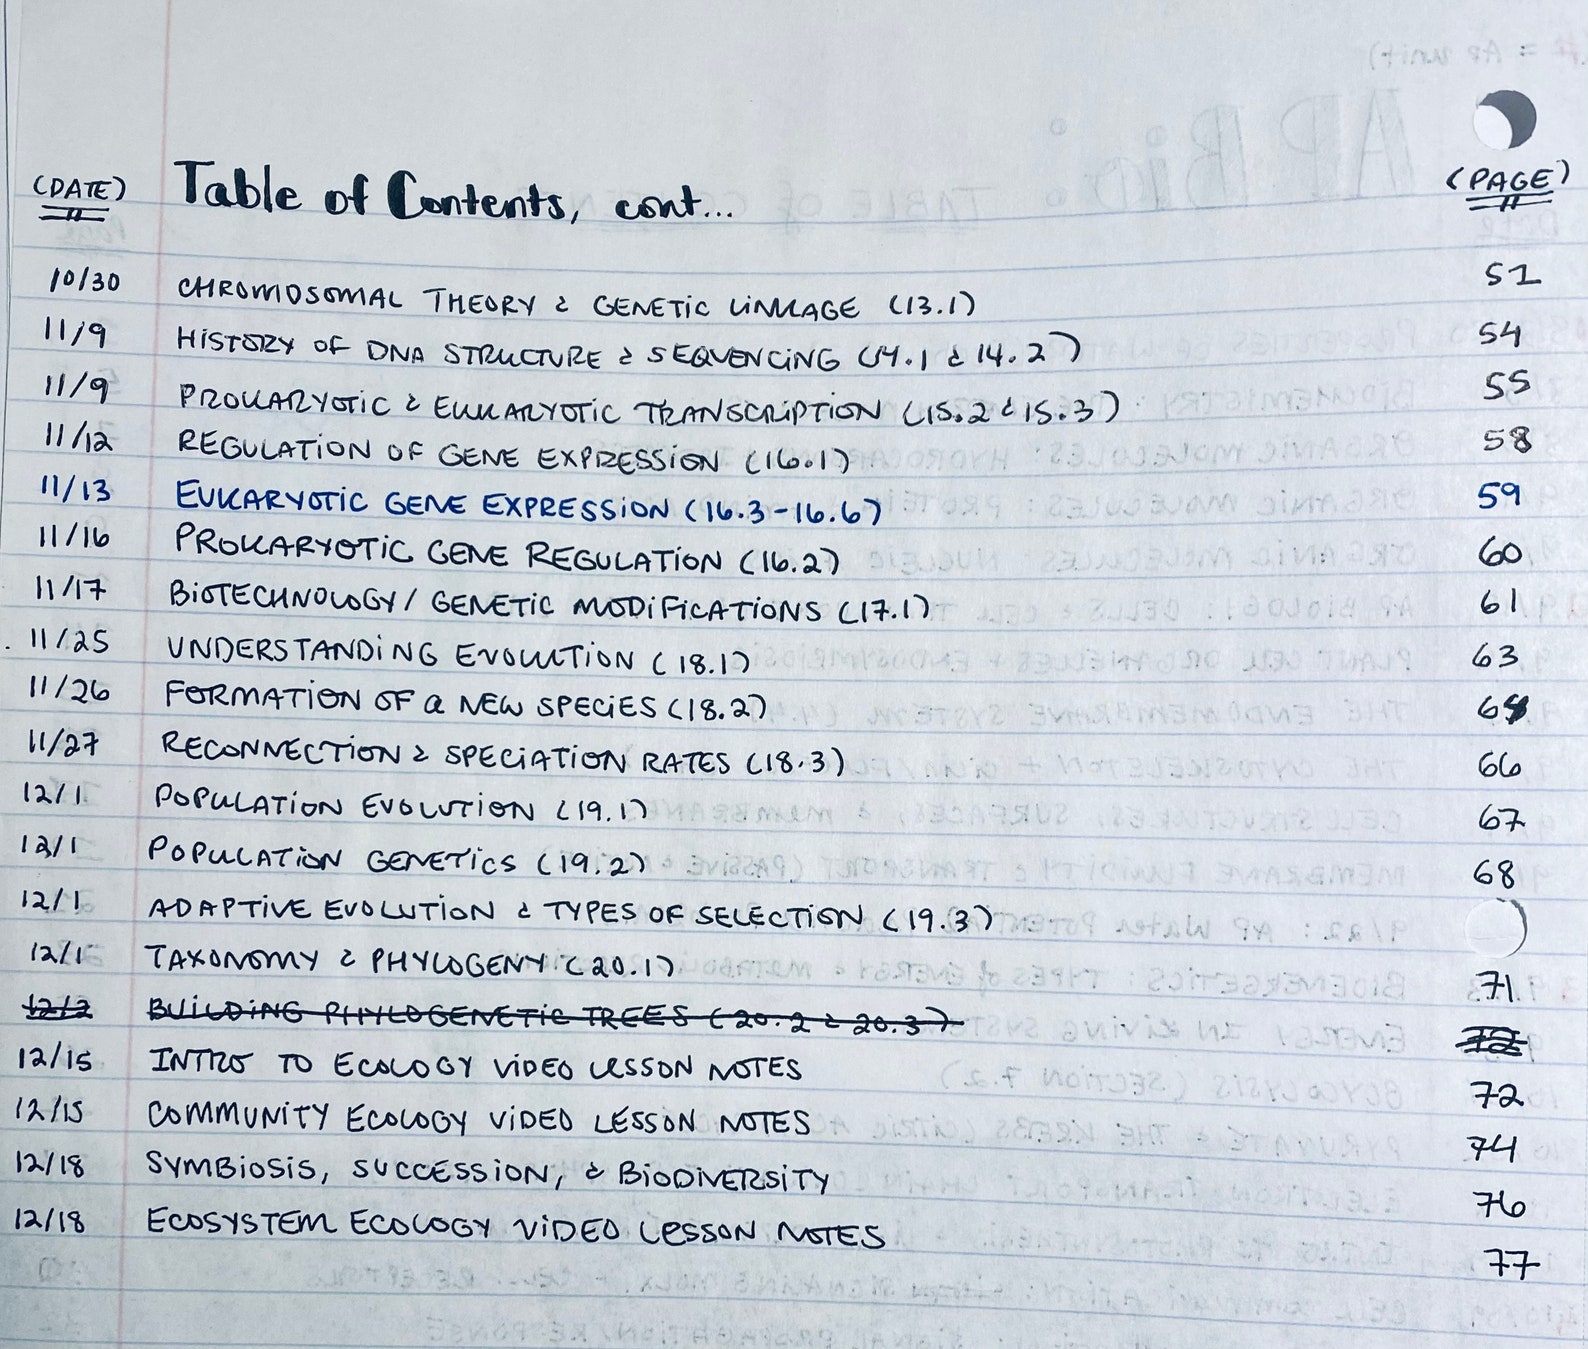 (DATE) Table of Contents, cont... (PAGE)
10/30 CHROMOSOMAL THEORY & GENETIC LINKAGE (13.1) 51
11/9 HISTORY OF DNA STRUCTURE & SEQUENCING (14.1 & 14.2) 54
11/9 PROKARYOTIC & EUKARYOTIC TRANSCRIPTION (15.2 & 15.3) 55
11/12 REGULATION OF GENE EXPRESSION (16.1) 58
11/13 EUKARYOTIC GENE EXPRESSION (16.3-16.6) 59
11/16 PROKARYOTIC GENE REGULATION (16.2) 60
11/17 BIOTECHNOLOGY/ GENETIC MODIFICATIONS (17.1) 61
11/25 UNDERSTANDING EVOLUTION (18.1) 63
11/26 FORMATION OF a NEW SPECIES (18.2)
11/27 RECONNECTION & SPECIATION RATES (18.3) 66
12/1 POPULATION EVOLUTION (19.1) 67
12/1 POPULATION GENETICS (19.2) 68
12/1 ADAPTIVE EVOLUTION & TYPES OF SELECTION (19.3)
12/1 TAXONOMY & PHYLOGENY (20.1) 71
12/2 BUILDING PHYLOGENETIC TREES (20.2 & 20.3) 72
12/15 INTRO TO ECOLOGY VIDEO LESSON NOTES 72
12/15 COMMUNITY ECOLOGY VIDEO LESSON NOTES 74
12/18 SYMBIOSIS, SUCCESSION, & BIODIVERSITY 76
12/18 ECOSYSTEM ECOLOGY VIDEO LESSON NOTES 77